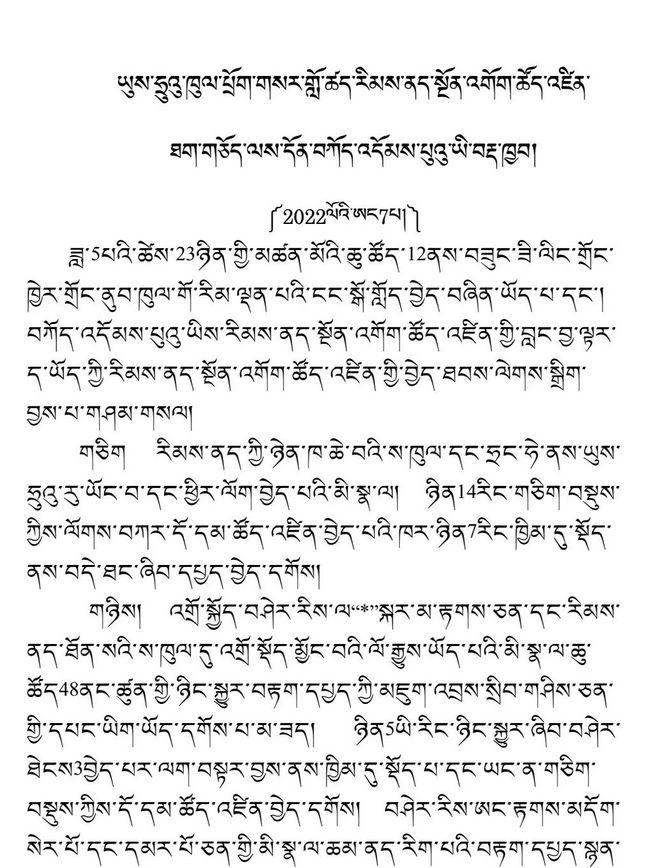 ཡུས་ཧྲུའུ་ཁུལ་པྲོག་གསར་གློ་ཚད་རིམས་ནད་སྔོན་འགོག་ཚོད་འཛིན་
ཐག་གཅོད་ལས་དོན་བཀོད་འདོམས་པུའུ་ཡི་བརྡ་ཁྱབ།
༼2022ལོའི་ཨང7པ།༽
ཟླ་5པའི་ཚེས་23ཉིན་གྱི་མཚན་མོའི་ཆུ་ཚོད་12ནས་བཟུང་ཟི་ལིང་གྲོང་
ཁྱེར་གྲོང་ནུབ་ཁུལ་གོ་རིམ་ལྡན་པའི་ངང་སྒོ་གློད་བྱེད་བཞིན་ཡོད་པ་དང་།
བཀོད་འདོམས་པུའུ་ཡིས་རིམས་ནད་སྔོན་འགོག་ཚོད་འཛིན་གྱི་བླང་བྱ་ལྟར་
ད་ཡོད་ཀྱི་རིམས་ནད་སྔོན་འགོག་ཚོད་འཛིན་གྱི་བྱེད་ཐབས་ལེགས་སྒྲིག་
བྱས་པ་གཤམ་གསལ།
གཅིག རིམས་ནད་ཀྱི་ཉེན་ཁ་ཆེ་བའི་ས་ཁུལ་དང་ཧྲང་ཧེ་ནས་ཡུས་
ཧྲུའུ་རུ་ཡོང་བ་དང་ཕྱིར་ལོག་བྱེད་པའི་མི་སྣ་ལ། ཉིན14རིང་གཅིག་བསྡུས་
ཀྱིས་ལོགས་བཀར་དོ་དམ་ཚོད་འཛིན་བྱེད་པའི་ཁར་ཉིན7རིང་ཁྱིམ་དུ་སྡོད་
ནས་བདེ་ཐང་ཞིབ་དཔྱད་བྱེད་དགོས།
གཉིས། འགྲོ་སྐྱོད་བཤེར་རིས་ལ“*”སྐར་མ་རྟགས་ཅན་དང་རིམས་
ནད་ཐོན་སའི་ས་ཁུལ་དུ་འགྲོ་སྡོད་མྱོང་བའི་ལོ་རྒྱུས་ཡོད་པའི་མི་སྣ་ལ་ཆུ་
ཚོད48ནང་ཚུན་གྱི་ཉིང་སྐྱུར་བརྟག་དཔྱད་ཀྱི་མཇུག་འབྲས་སྲིབ་གཤིས་ཅན་
གྱི་དཔང་ཡིག་ཡོད་དགོས་པ་མ་ཟད། ཉིན5ཡི་རིང་ཉིང་སྐྱུར་ཞིབ་བཤེར་
ཐེངས3བྱེད་པར་ལག་བསྟར་བྱས་ནས་ཁྱིམ་དུ་སྡོད་པ་དང་ཡང་ན་གཅིག་
བསྡུས་ཀྱིས་དོ་དམ་ཚོད་འཛིན་བྱེད་དགོས། བཤེར་རིས་ཨང་རྟགས་མདོག་
སེར་པོ་དང་དམར་པོ་ཅན་གྱི་མི་སྣ་ལ་ཆམ་ནད་རིག་པའི་བརྟག་དཔྱད་སྙན་